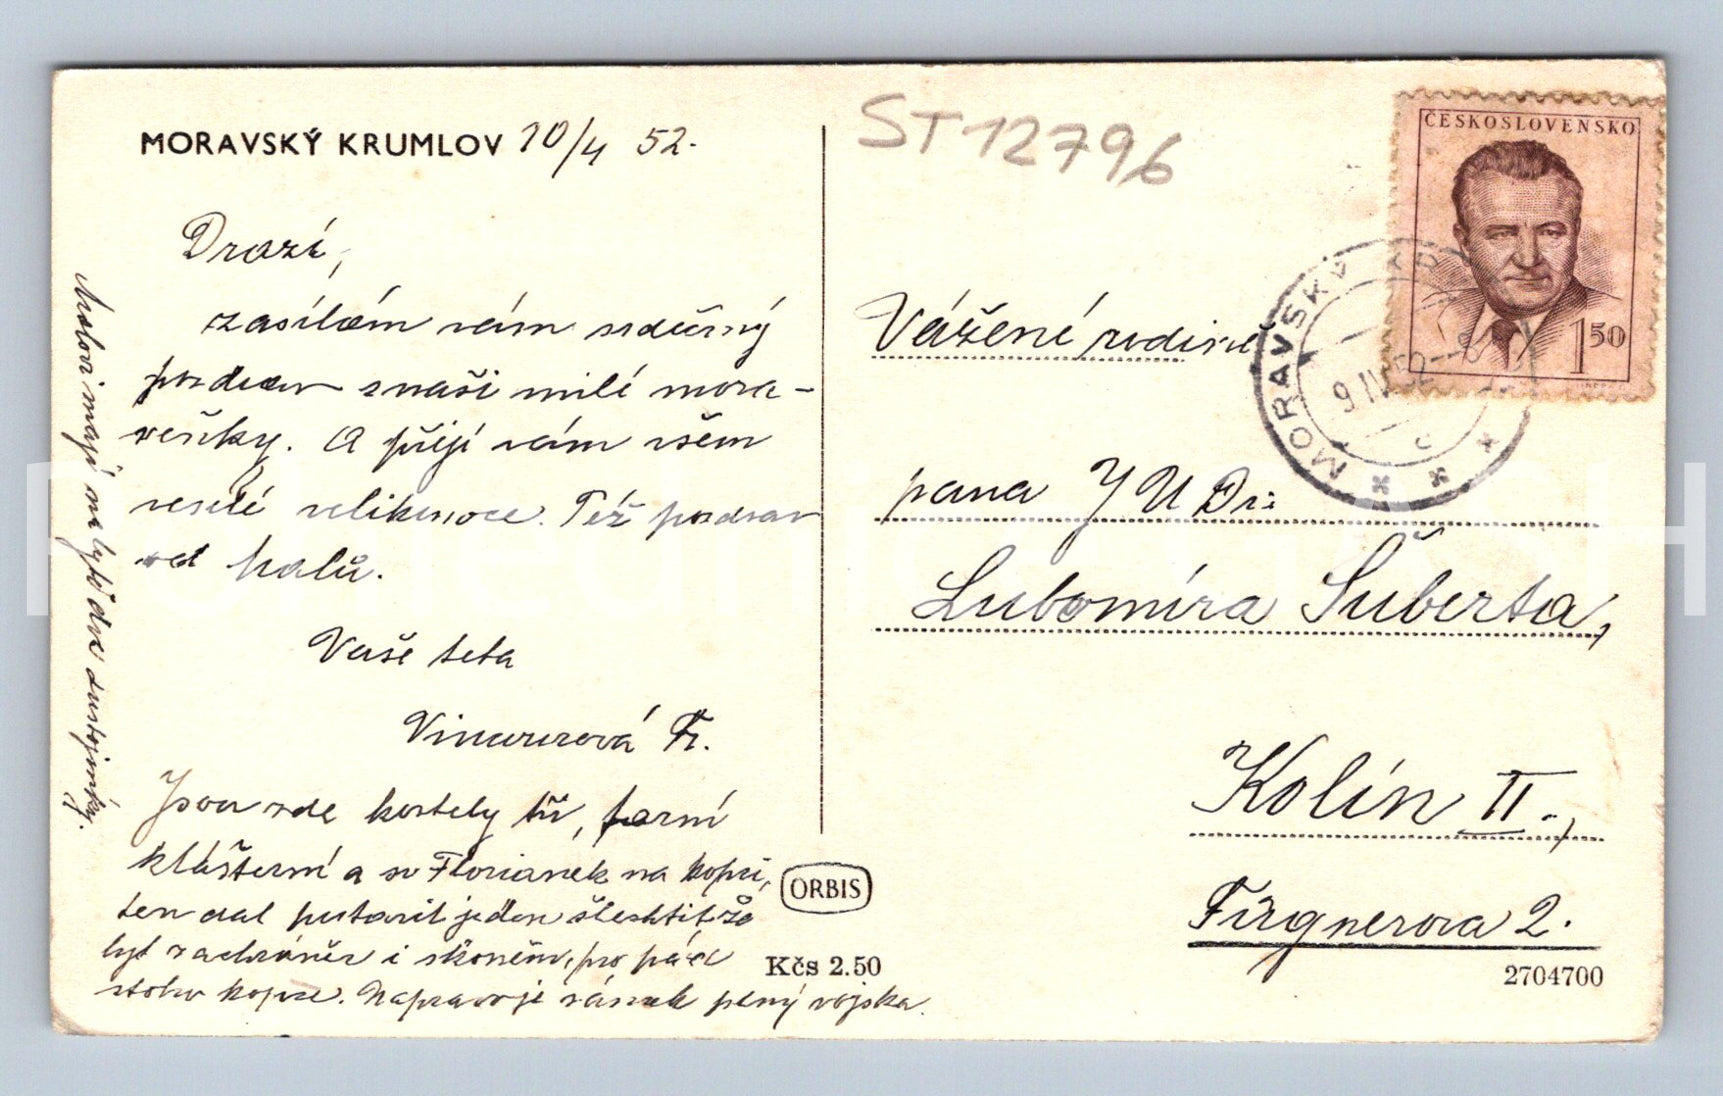 MORAVSKÝ KRUMLOV 10/4 52.
Drazí,
zasílám vám srdečný
pozdrav z naší milé mora-
věnky. A přeji vám všem
veselé velikonoce. Též pozdrav
od Malů.
Vaše teta
Vinarová Fr.
Jsou zde kostely tři, farní
klášterní a sv Floriánek na kopci,
ten dal postavit jeden šlechtic že
byl zachráněn i s koněm, po pádu
s toho kopce. Napravo je zámek plný vojska.
Malovi mají na bytě dva důstojníky.
ST 12796
ČESKOSLOVENSKO
1 50
MORAVSKÝ KR
9 IV 52
c
Vážené rodině
pana JUDr:
Lubomíra Šuberta,
Kolín II.,
Fügnerova 2.
ORBIS
Kčs 2.50
2704700